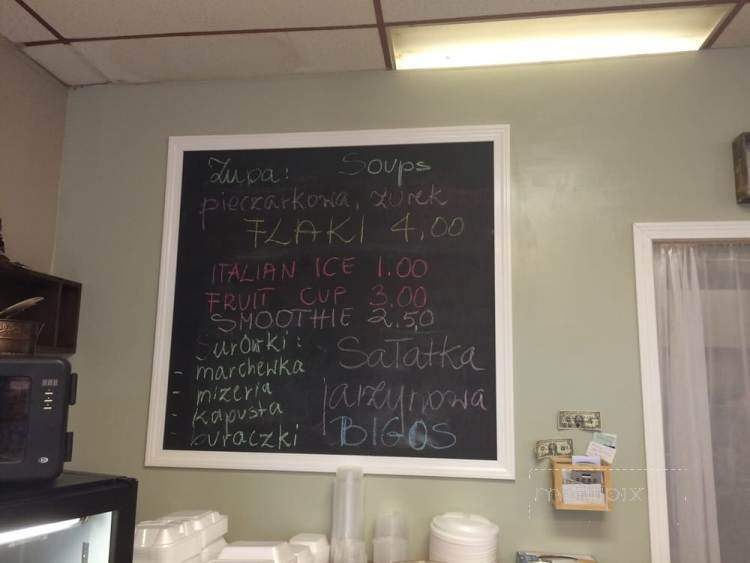 Zupa: Soups
pieczarkowa, żurek
FLAKI 4,00
ITALIAN ICE 1.00
FRUIT CUP 3.00
SMOOTHIE 2.50
Surówki:
- marchewka
- mizeria
- kapusta
- buraczki
Sałatka
jarzynowa
BIGOS